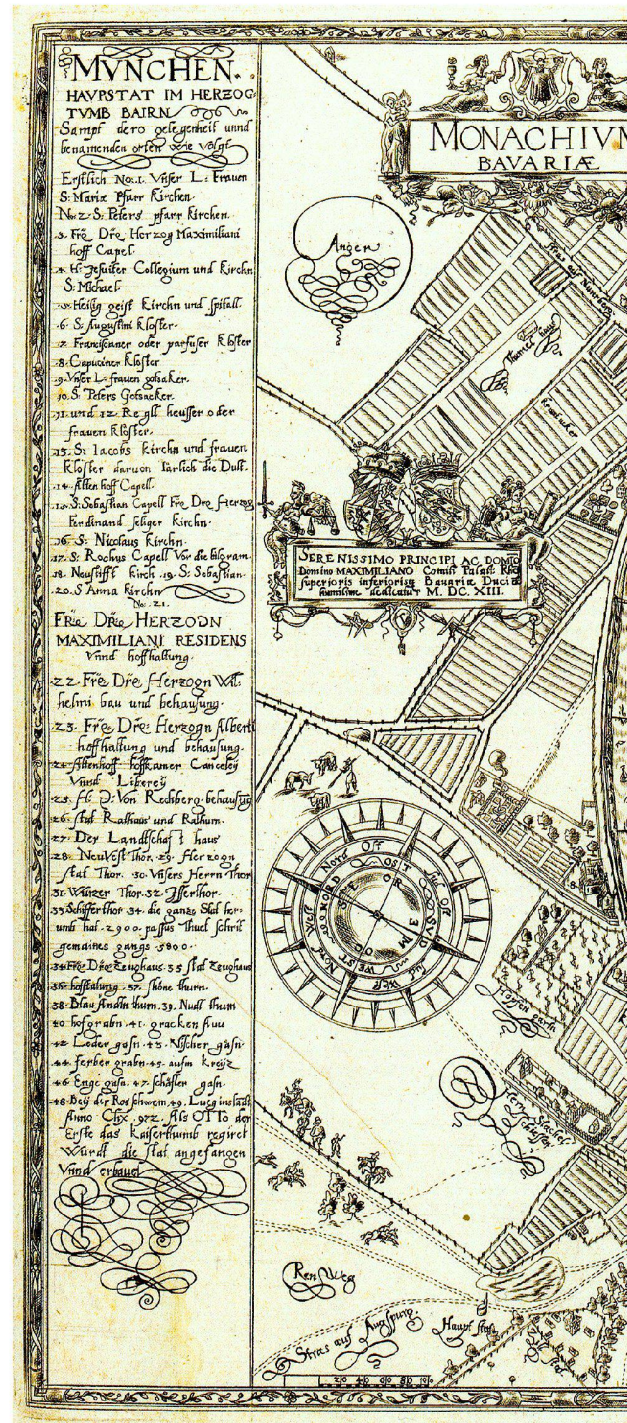 MVNCHEN.
HAVPSTAT IM HERZOG-
TVMB BAIRN
Sampt dero gelegenheit unnd
benamenden orten wie volgt
Erstlich No: 1. Vnser L: Frauen
S: Mariæ Pfarr Kirchen.
No: 2. S: Peters pfarr Kirchen.
3. Fre Dre Herzog Maximiliani
hoff Capel.
4. H: Jesuiter Collegium und Kirchn
S: Michael.
5. Heilig geist Kirchn und spitall.
6. S: Augustini Kloster.
7. Franciscaner oder parfuser Kloster
8. Capuciner Kloster
9. Vnser L: frauen gotsaker.
10. S: Peters Gotsacker.
11. und 12. Regll heusser oder
frauen Kloster.
13. S: Iacobs Kirchn und frauen
Kloster darvon Iarlich die Dult.
14. Alten hoff Capell.
15. S: Sebastian Capell Fre Dre Herzog
Ferdinand seliger Kirchn.
16. S: Nicolaus Kirchn.
17. S: Rochus Capell Vor die bilgram.
18. Neustifft Kirch. 19. S: Sebastian.
20. S Anna Kirchn
No: 21.
FRE DRE HERZOGN
MAXIMILIANI RESIDENS
Vnnd hoffhaltung.
22. Fre Dre Herzogn Wil-
helmi bau und behausung.
23. Fre Dre: Herzogn Alberti
hoffhaltung und behausung.
24. Altenhoff hoffkamer Canceley
Vnnd Liberey
25. H: D: Von Rechberg behausung
26. stat Rathaus und Rathurn.
27. Der Landtschaft haus
28. NeuVest Thor. 29. Herzogn
stat Thor. 30. Vnsers Herrn Thor
31. Würzer Thor. 32. Isserthor.
33. Schifferthor 34. die ganze Stat her-
umb hat 2900. passus Thuet schrit
gemaines gangs 5800.
34. Fre Dre Zeughaus. 35 stat Zeughaus
36. hofstalung. 37. schöne thurn.
38. Blau Andln thurn. 39. Nudl thurn
40 hofgrabn. 41. gracken
42 Loder gasn. 43. Vischer gasn.
44. ferber grabn. 45. aufm Kreiz
46 Enge gasn. 47. schäfler gasn.
48. Bey der Ros schwem. 49. Lueg instadt
Anno 972. Als OTTo der
Erste das Kaiserthumb regiret
Wurdt die stat angefangen
Vnnd erbauet
MONACHIVM
BAVARIÆ
Anger
Stras auf Nurnberg
SERENISSIMO PRINCIPI AC DOMINO
Domino MAXIMILIANO Comiti Palat: Rhe
superioris inferiorisq Bavariæ Duci &
humilime dedicatur M. DC. XIII.
Nord Ost
OST
Sud Ost
SVD
Sud West
WEST
Nord West
NORD
Hopfen gartn
Herzog
Ren Weg
Stras auf Augspurg.
Haupt stat
20 40 60 80 100